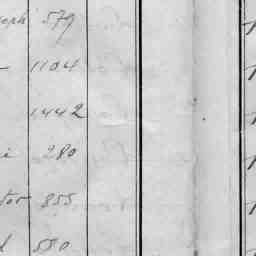 seph 579
1104
1442
i 280
tor 855
d 550